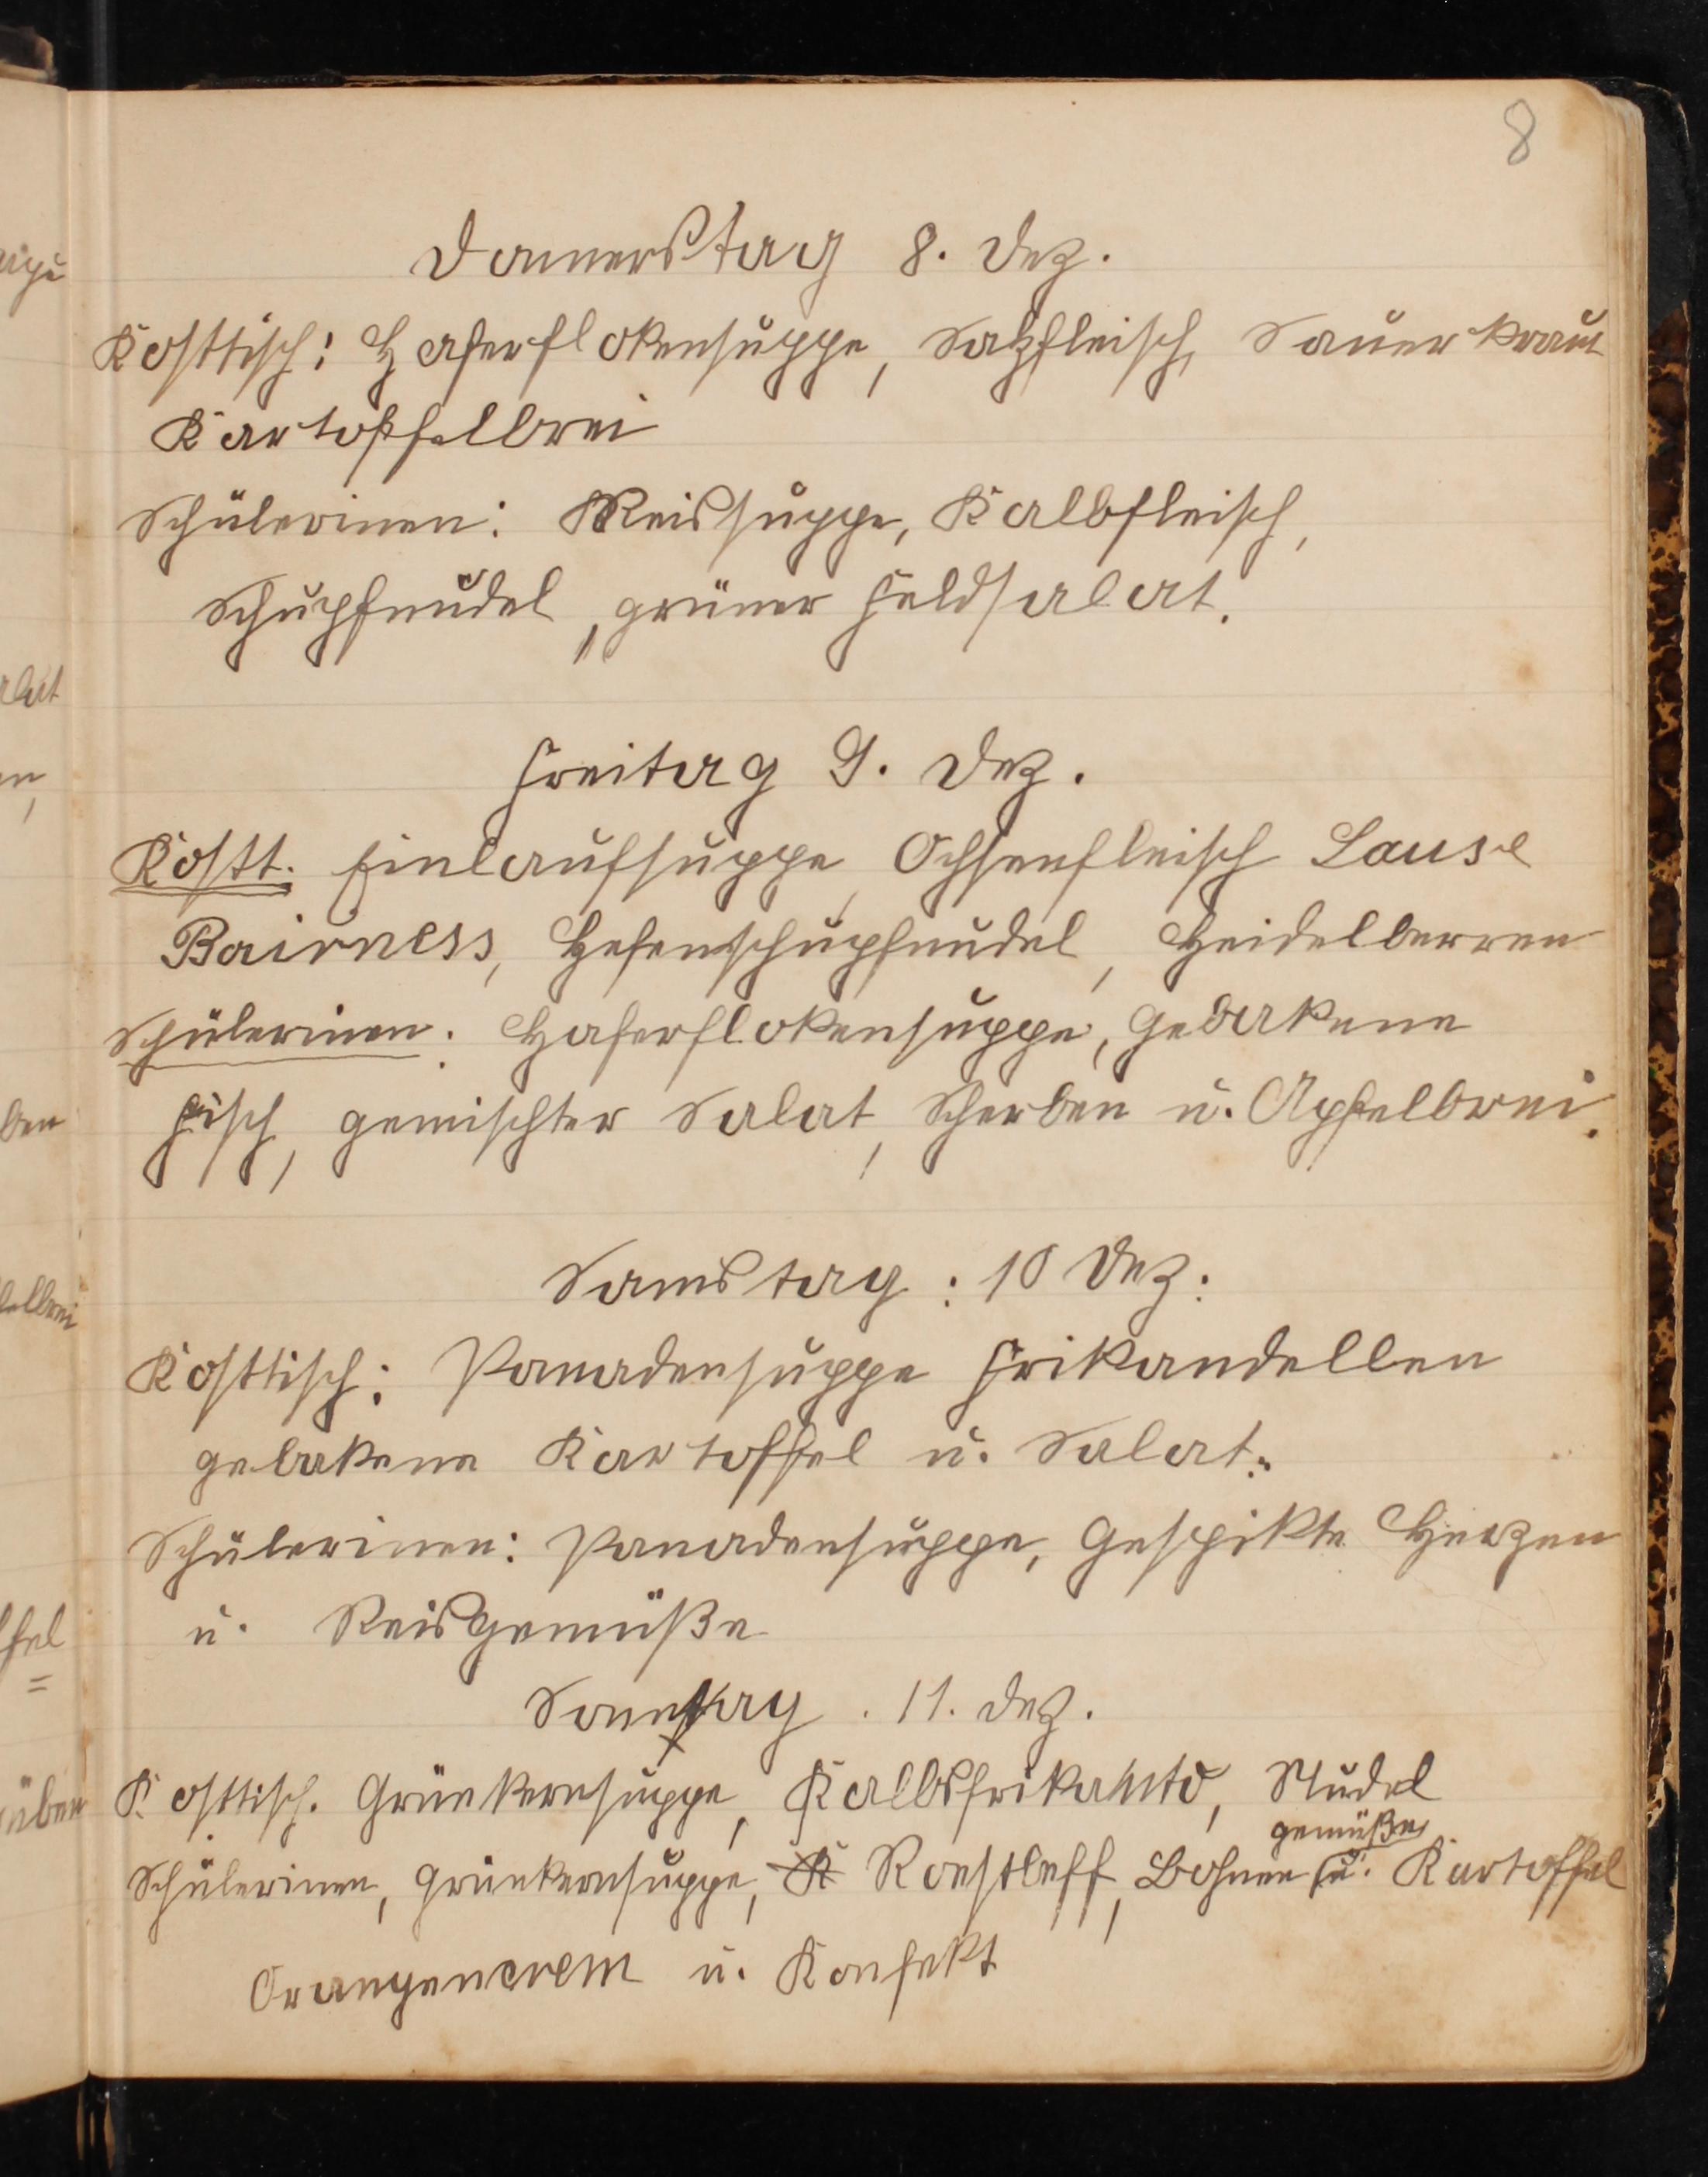 8
Donnerstag 8. Dez.
Kosttisch: Haferflokensuppe, Salzfleisch, Sauerkraut
Kartoffelbrei
Schülerinen: Reissuppe, Kalbfleisch,
Schupfnudel, grüner Feldsalat.
Freitag 9. Dez.
Kostt. Einlaufsuppe, Ochsenfleisch Sause
Bairness, Hefenschupfnudel, Heidelberren
Schülerinen. Haferflokensuppe, Gebakene
Fisch, gemischter Salat, Scherben u. Apfelbrei.
Samstag: 10 Dez:
Kosttisch: Panadensuppe Frikandellen
gebakene Kartoffel u. Salat.
Schülerinen: Panadensuppe, Gespikte Herzen
u. Reisgemüße
Sonntag. 11. Dez.
Kosttisch. Grünkernsuppe, Kalbsfrikanto, Nudel
gemüße
Schülerinen, Grünkernsuppe, Roestbeff, Bohnen u. Kartoffel
Orangencrem u. Konfekt